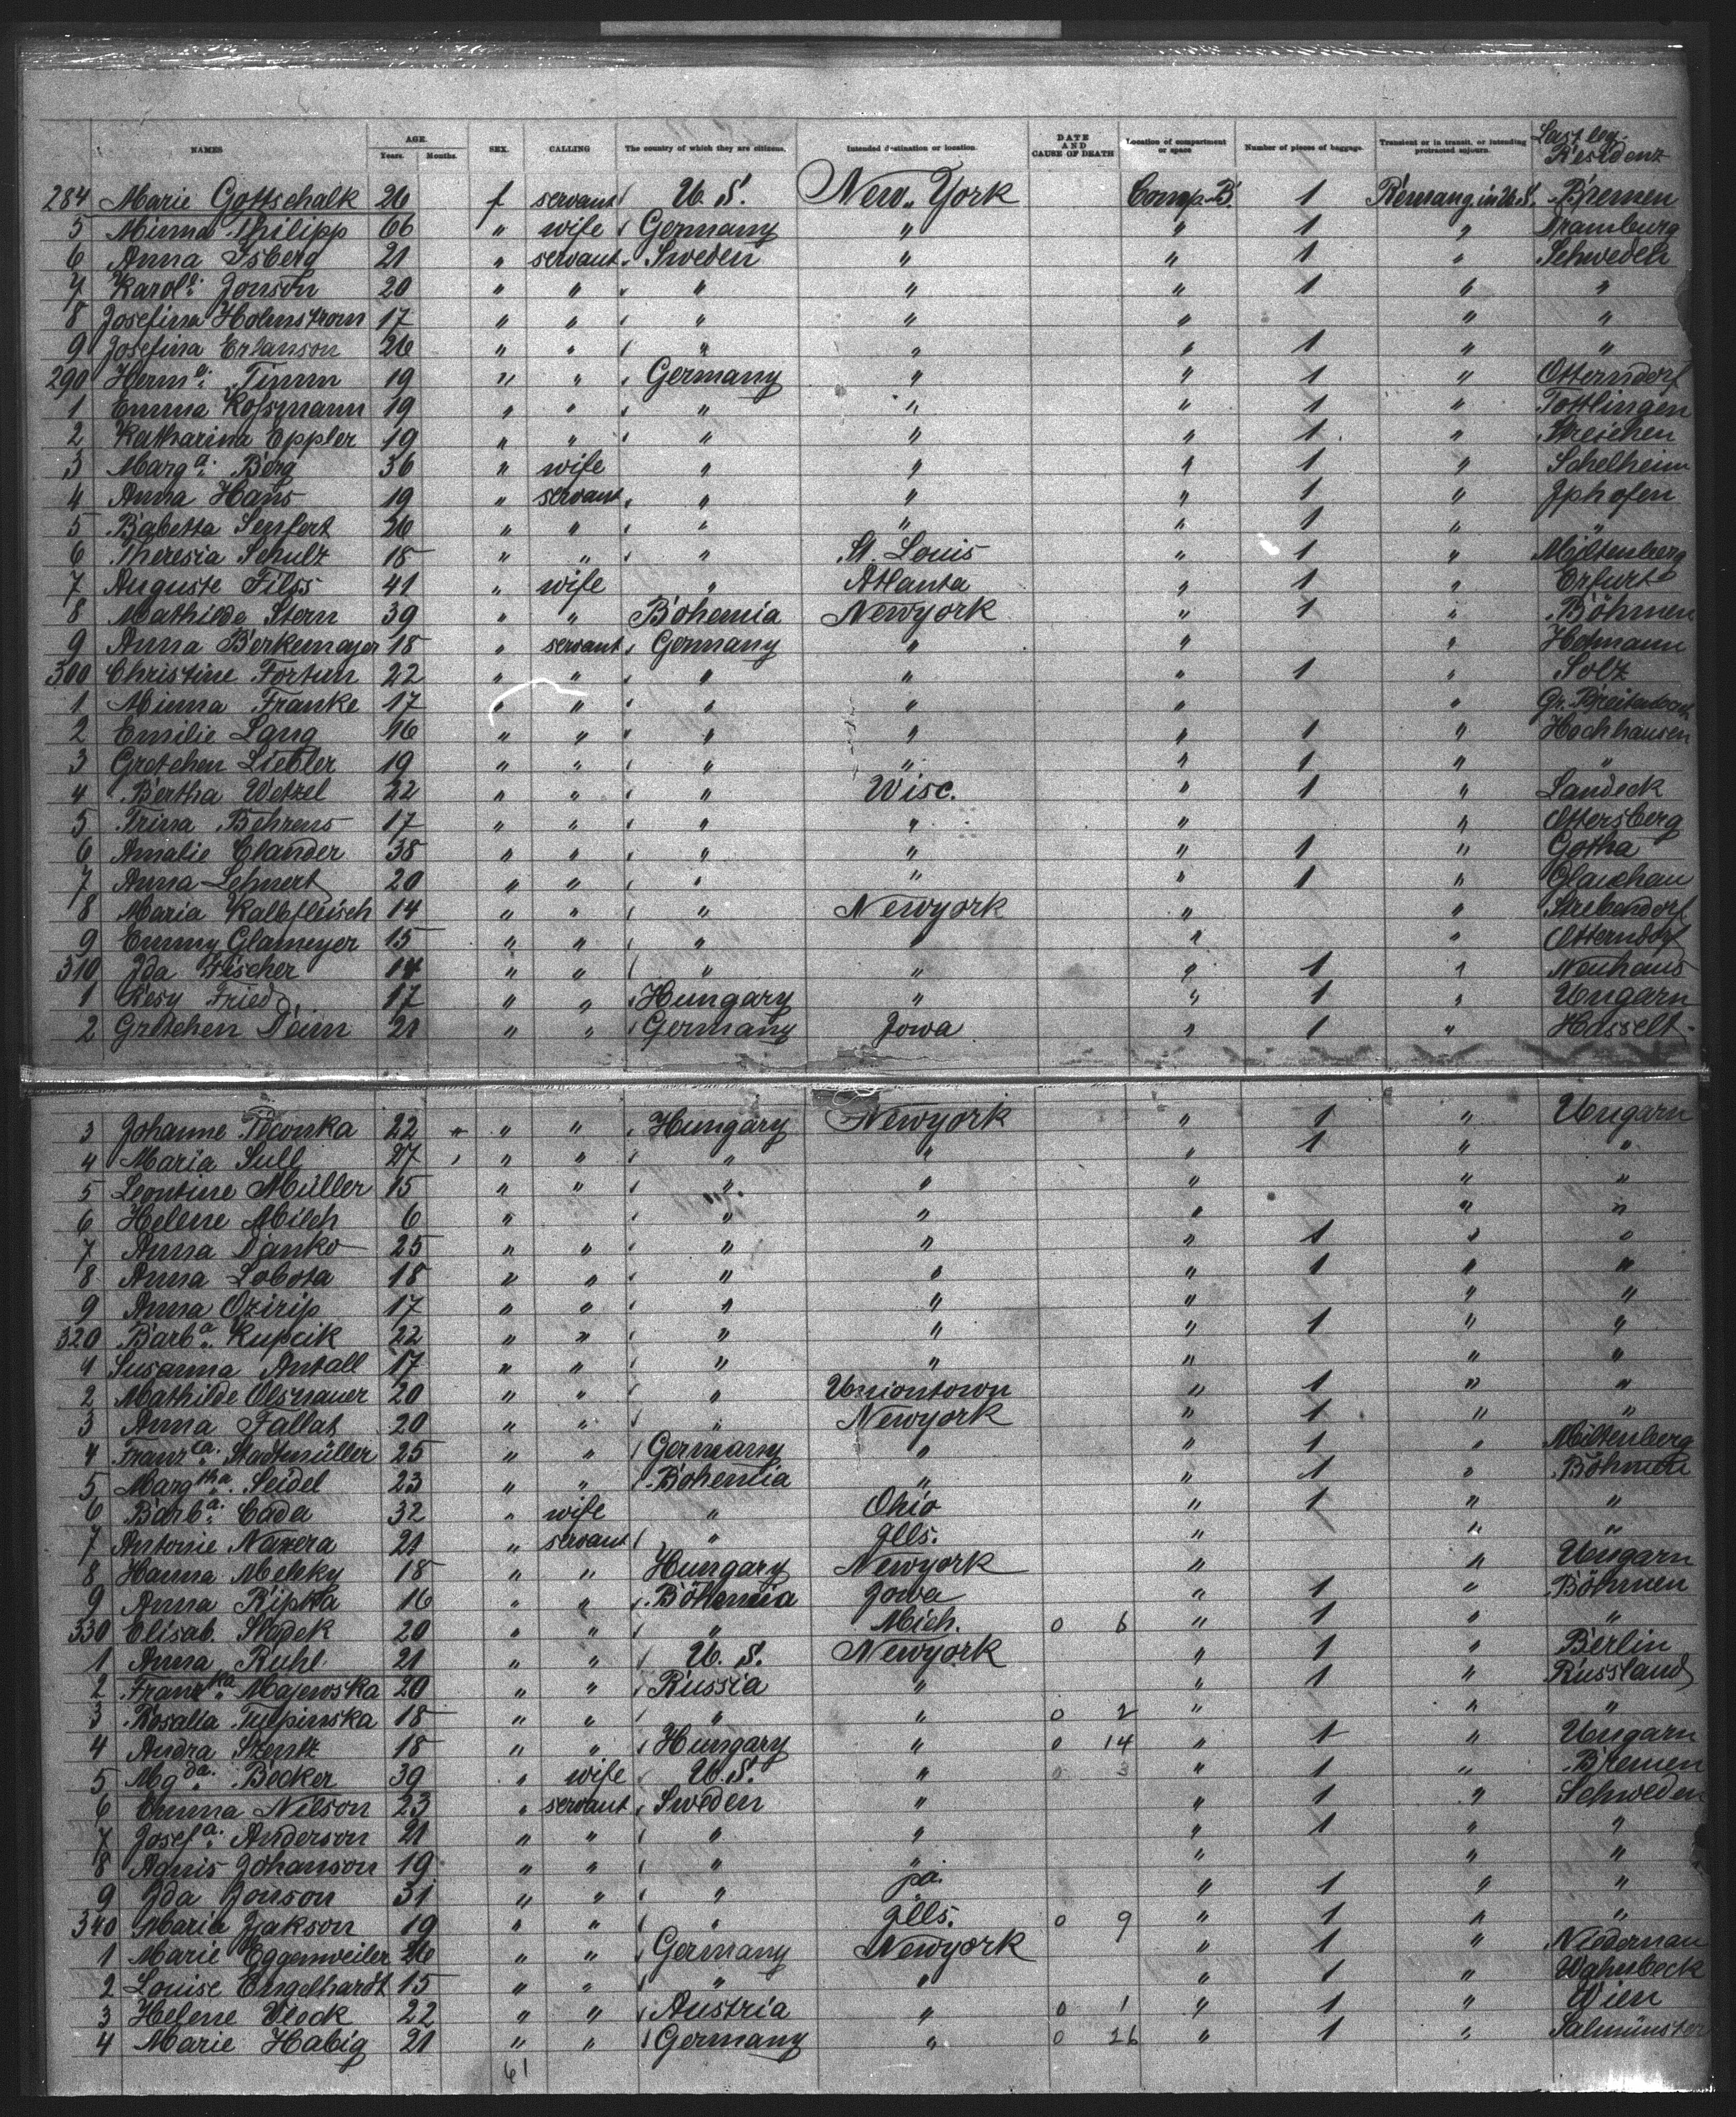 NAMES AGE. Years. Months. SEX. CALLING The country of which they are citizens. Intended destination or location. DATE AND CAUSE OF DEATH Location of compartment or space Number of pieces of baggage. Transient or in transit, or intending protracted sojourn. Last leg. Residenz
284 Marie Gottschalk 26 f servant U. S. New York Comp. B. 1 in U.S. Bremen
5 Minna Philipp 66 " wife Germany " " 1 " Dramburg
6 Anna Isberg 21 " servant Sweden " " 1 " Schweden
7 Karole: Jonson 20 " " " " " 1 " "
8 Josefina Holmstrom 17 " " " " " " "
9 Josefina Erlanson 26 " " " " " 1 " "
290 Herm a: Timm 19 " " Germany " " 1 " Otterndorf
1 Emma Kossmann 19 " " " " " 1 " Tottlingen
2 Katharina Eppler 19 " " " " " 1 "
3 Marg a: Berg 36 " wife " " " 1 " Schelheim
4 Anna Hans 19 " servant " " " 1 " Iphofen
5 Babetta Senfert 26 " " " " " 1 " "
6 Theresia Schulz 18 " " " St. Louis " 1 " Miltenberg
7 Auguste Filss 41 " wife " Atlanta " 1 " Erfurt
8 Mathilde Stern 39 " " Bohemia Newyork " 1 " Böhmen
9 Anna Berkemayer 18 " servant Germany " " "
300 Christine Fortun 22 " " " " " 1 " Solz
1 Minna Franke 17 " " " " " " Gr. Breitenbach
2 Emilie Lang 16 " " " " " 1 " Hochhausen
3 Gretchen Liebler 19 " " " " " 1 " "
4 Bertha Wetzel 22 " " " Wisc. " 1 " Landeck
5 Trina Behrens 17 " " " " " " Ottersberg
6 Amalie Clander 38 " " " " " 1 " Gotha
7 Anna Lehnert 20 " " " " " 1 " Glauchau
8 Maria Kalbfleisch 14 " " " Newyork " " Strebendorf
9 Emmy Glameyer 15 " " " " " " Otterndorf
310 Ida Fischer 14 " " " " " 1 " Neuhaus
1 Resy Fried 17 " " Hungary " " 1 " Ungarn
2 Gretchen Deim 21 " " Germany Jowa " 1 " Hasselt
3 Johanne 22 " " " Hungary Newyork " 1 " Ungarn
4 Maria Sull 27 " " " " " 1 " "
5 Leontine Müller 15 " " " " " " "
6 Helene Milch 6 " " " " " "
7 Anna Danko 25 " " " " " 1 " "
8 Anna Lobota 18 " " " " " 1 " "
9 Anna Ozirip 17 " " " " " " "
320 Barb a: Kupcik 22 " " " " " 1 " "
1 Susanna Antall 17 " " " " " " "
2 Mathilde Olsnauer 20 " " " Uniontown " 1 " "
3 Anna Fallat 20 " " " Newyork " 1 " "
4 Franz ca: Stadtmüller 25 " " Germany " " 1 " Miltenberg
5 Marg tha: Seidel 23 " " Bohemia " " 1 " Böhmen
6 Barb a: Cada 32 " wife " Ohio " 1 " "
7 Antonie Nazera 21 " servant " Ills. " " "
8 Hanna Melsky 18 " " Hungary Newyork " " Ungarn
9 Anna Ripka 16 " " Böhemia Jowa " 1 " Böhmen
330 Elisab. Sladek 20 " " " Mich. 0 6 " 1 " "
1 Anna Ruhl 21 " " U. S. Newyork " 1 " Berlin
2 Franz ka: Majewska 20 " " Russia " " 1 " Russland
3 Rosalia Tulpinska 18 " " " " 0 2 " " "
4 Andra Szentz 18 " " Hungary " 0 14 " 1 " Ungarn
5 Mg da: Becker 39 " wife U. S. " 0 3 " 1 " Bremen
6 Emma Nilson 23 " servant Sweden " " 1 " Schweden
7 Josef a: Anderson 21 " " " " " 1 " "
8 Agnis Johanson 19 " " " " " " "
9 Ida Jonson 31 " " " pa. " 1 " "
340 Maria Jakson 19 " " " Ills. 0 9 " 1 " "
1 Marie Eggenweiler 26 " " Germany Newyork " 1 " Niedernau
2 Louise Engelhardt 15 " " " " " 1 "
3 Helene Vleck 22 " " Austria " 0 1 " 1 " Wien
4 Marie Habig 21 " " Germany " 0 26 " 1 " Salmünster
61